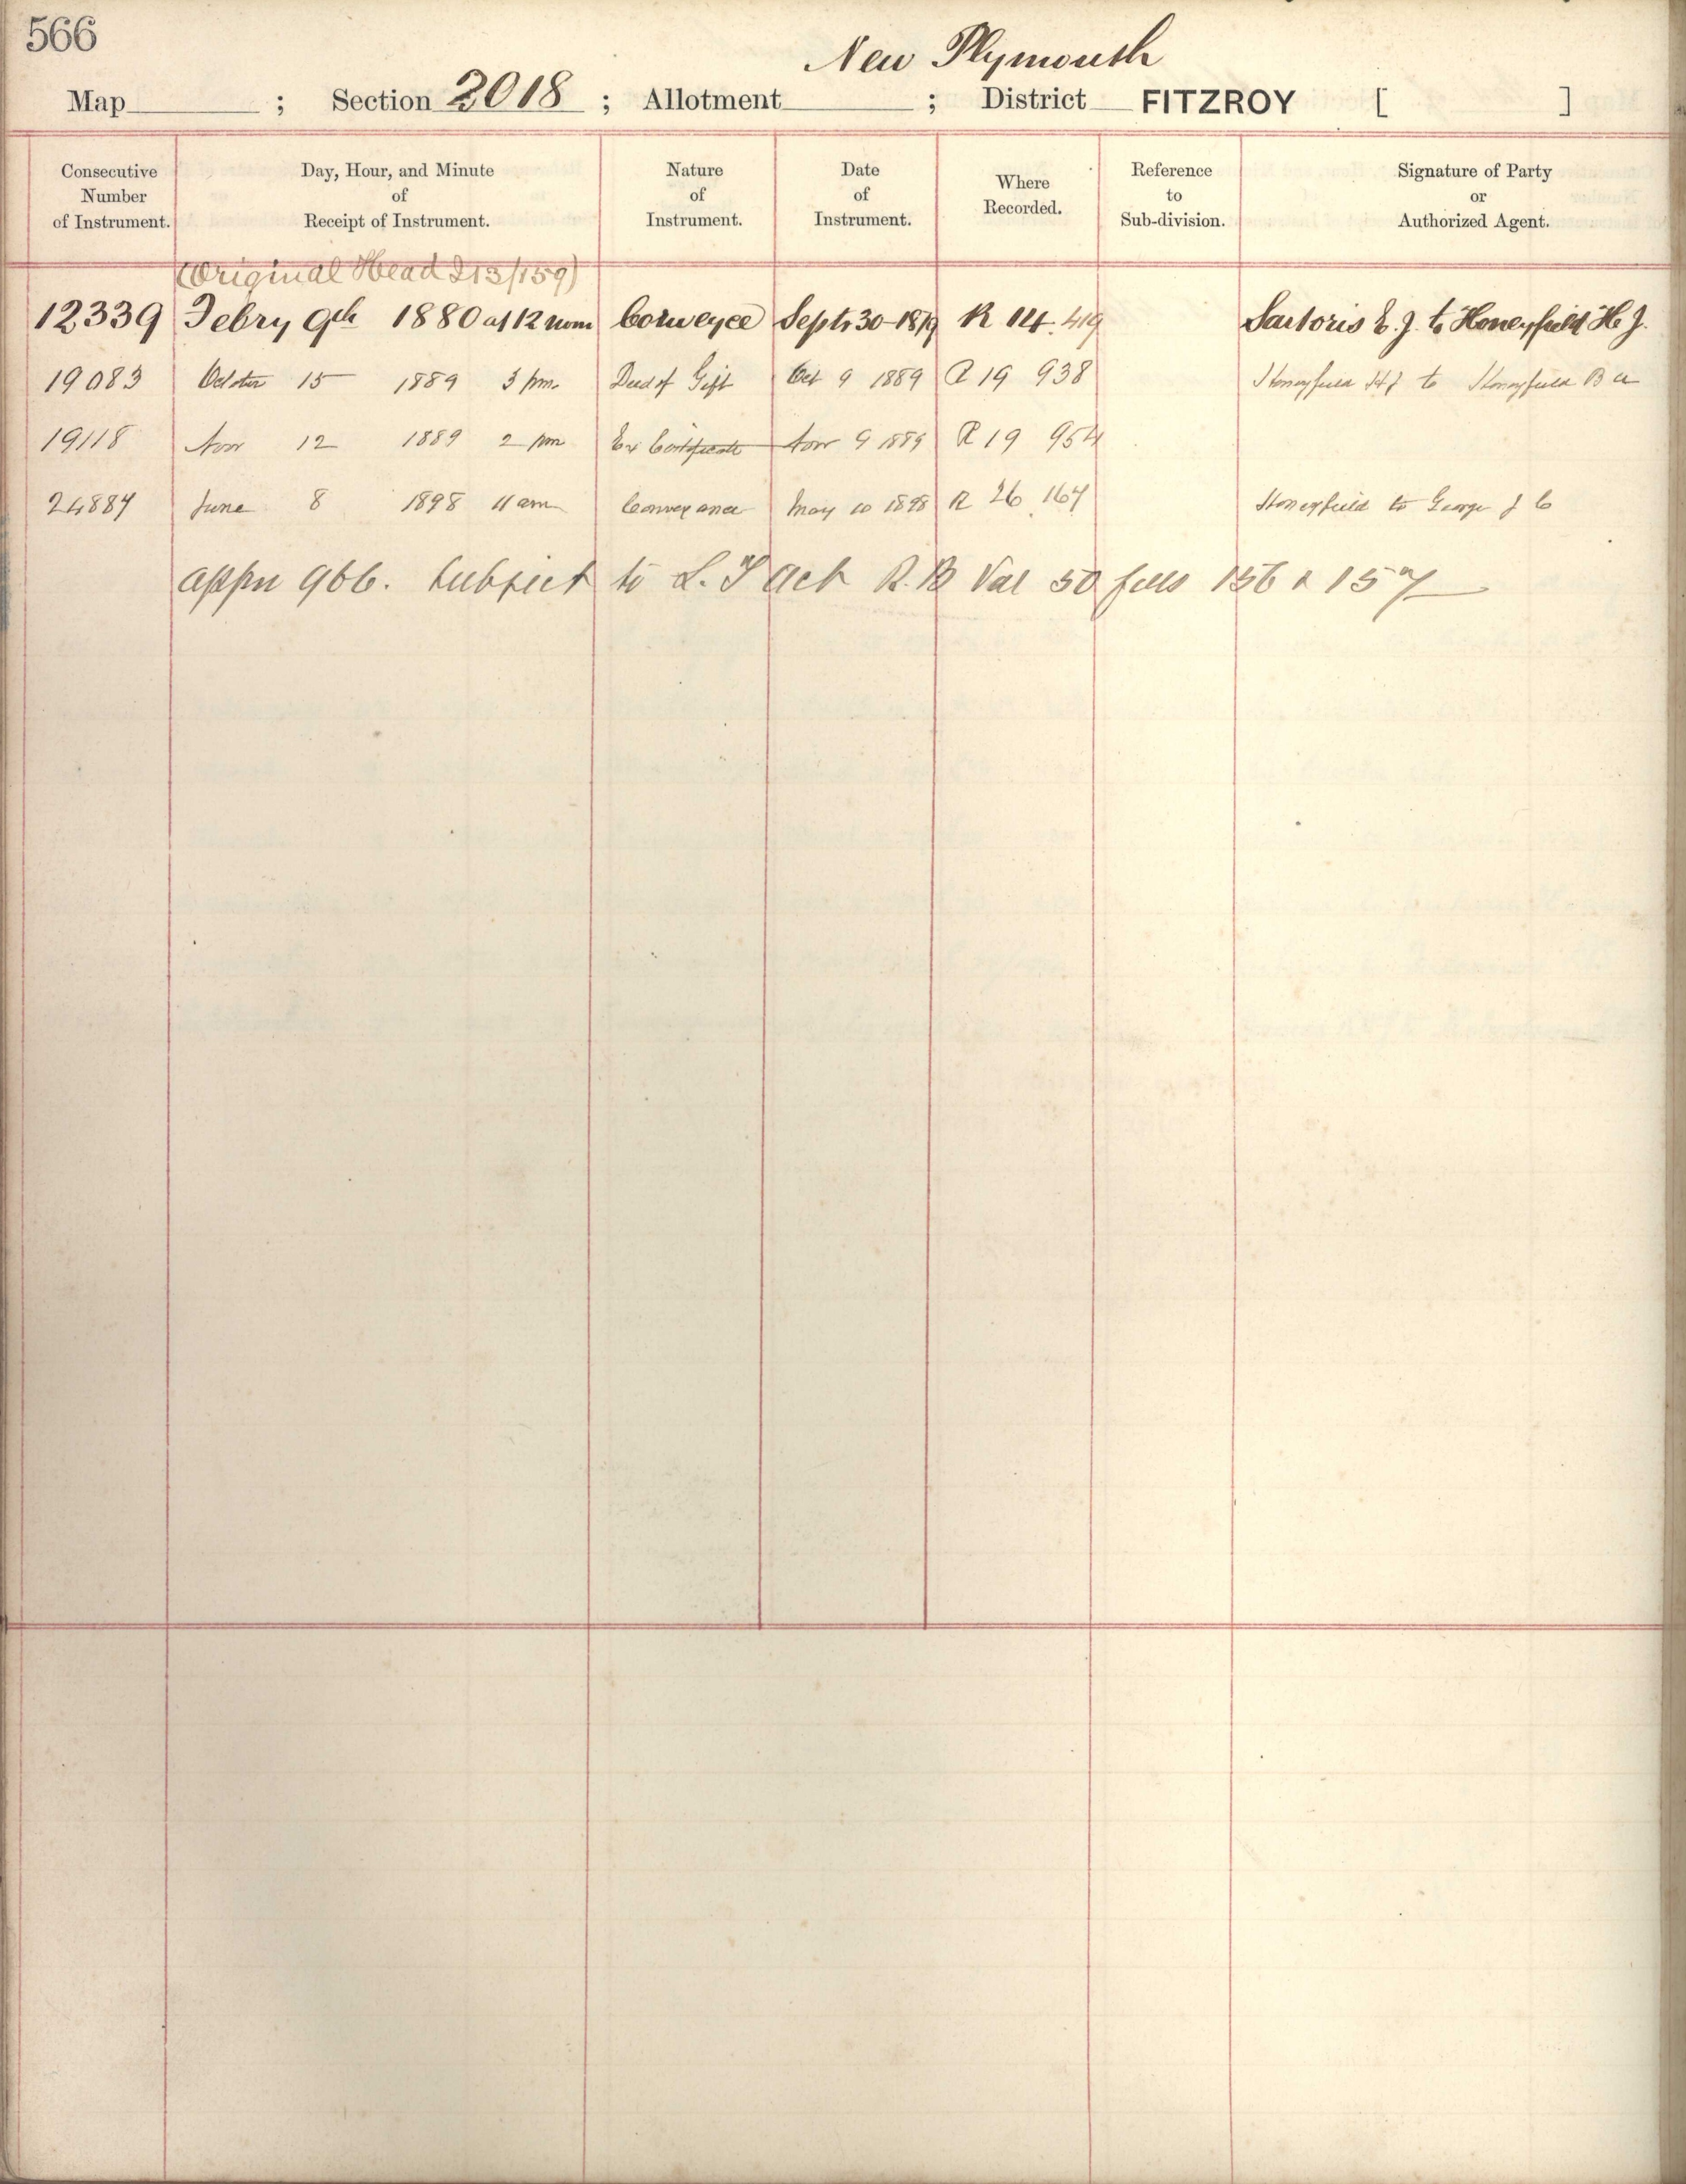 566
New Plymouth
Map ; Section 2018 ; Allotment ; District FITZROY [ ]
Consecutive Number of Instrument. Day, Hour, and Minute of Receipt of Instrument. Nature of Instrument. Date of Instrument. Where Recorded. Reference to Sub-division. Signature of Party or Authorized Agent.
(Original Head 213/159)
12339 Febry 9th 1880 at 12 noon Conveyce Septr 30 1879 R 14. 419 Sartoris E. J. to Honeyfield H. J.
19083 October 15 1889 3 pm. Deed of Gift Oct 9 1889 R 19 938 Honeyfield H J to Honeyfield B a
19118 Novr 12 1889 2 pm Ex Certificate Novr 9 1889 R 19 954
24884 June 8 1898 11 am Conveyance May 10 1898 R 26 164 Honeyfield to George J C
appn 966. Subject to L. T Act R. B Vol 50 folls 156 & 157